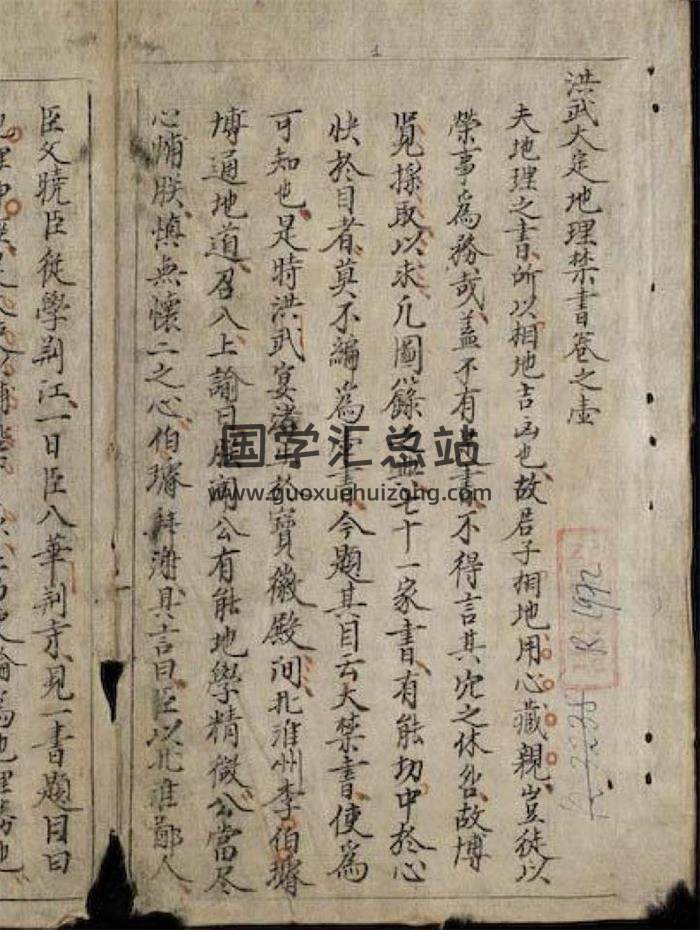 洪武大定地理禁書卷之壹
夫地理之書所以相地吉凶也故君子相地用心藏親豈徒以
榮事為務哉盖不有書不得言其穴之休咎故博
覽採取以求凡圖籙七十一家書有能切中於心
快於目者莫不編為書今題其目云大禁書使為
可知也是時洪武宴於寶徽殿问北淮州李伯
博通地道召入上諭曰朕闻公有能地學精微公當尽
心輔朕慎無懷二之心伯拜谢具言曰臣以北淮鄭人
臣父曉臣従學荆江一日臣入華荆寺見一書題目曰
地理
国学汇总站
www.guoxuehuizong.com
R.1992